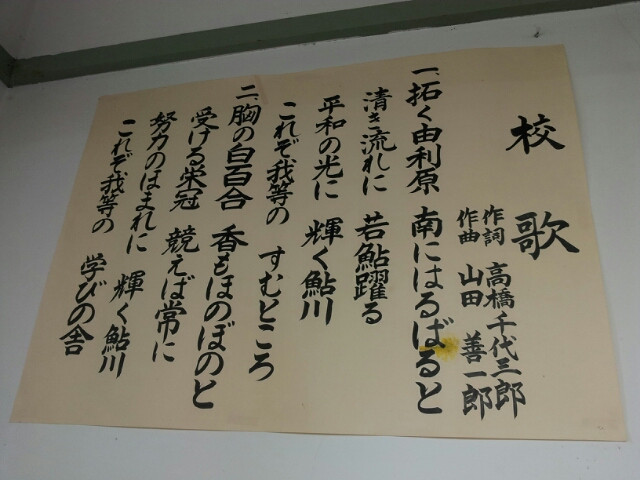 校歌
作詞 高橋千代三郎
作曲 山田善一郎
一、拓く由利原 南にはるばると
清き流れに 若鮎躍る
平和の光に 輝く鮎川
これぞ我等の すむところ
二、胸の白百合 香もほのぼのと
受ける栄冠 競えば常に
努力のほまれに 輝く鮎川
これぞ我等の 学びの舎